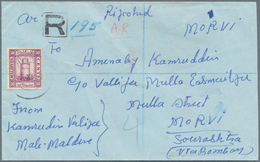 R 195 A.R
MORVi
To
Amenabay Kamruddin
c/o Vallijee Mulla Esmailjee
Mulla Street
MORVi
Sourashtra
(Via Bombay)
From
Kamrudin Valijee
Male-Maldive